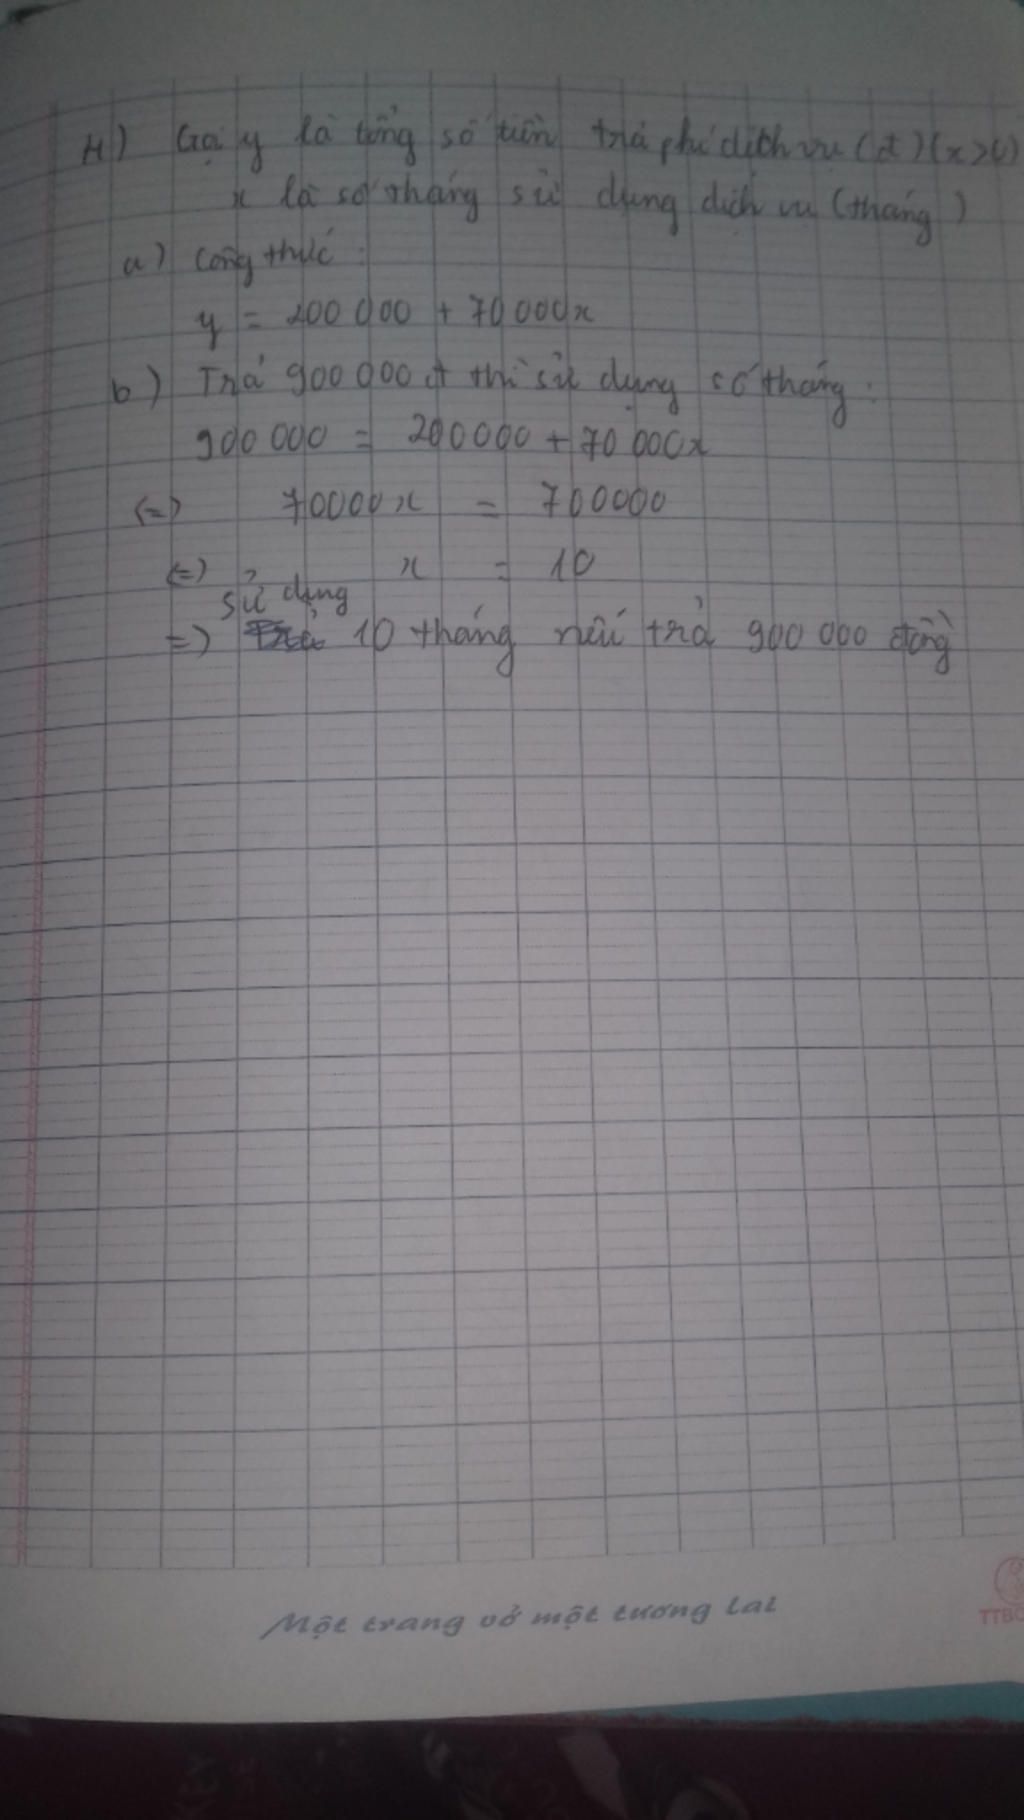 4) Gọi y là tổng số tiền trả phí dịch vụ (đ) (x>0)
x là số tháng sử dụng dịch vụ (tháng)
a) Công thức :
y = 200 000 + 70 000x
b) Trả 900 000 đ thì sử dụng số tháng :
900 000 = 200000 + 70 000x
(=) 70000x = 700000
(=) x = 10
sử dụng
=) Trả 10 tháng nếu trả 900 000 đồng
Một trang vở một tương lai